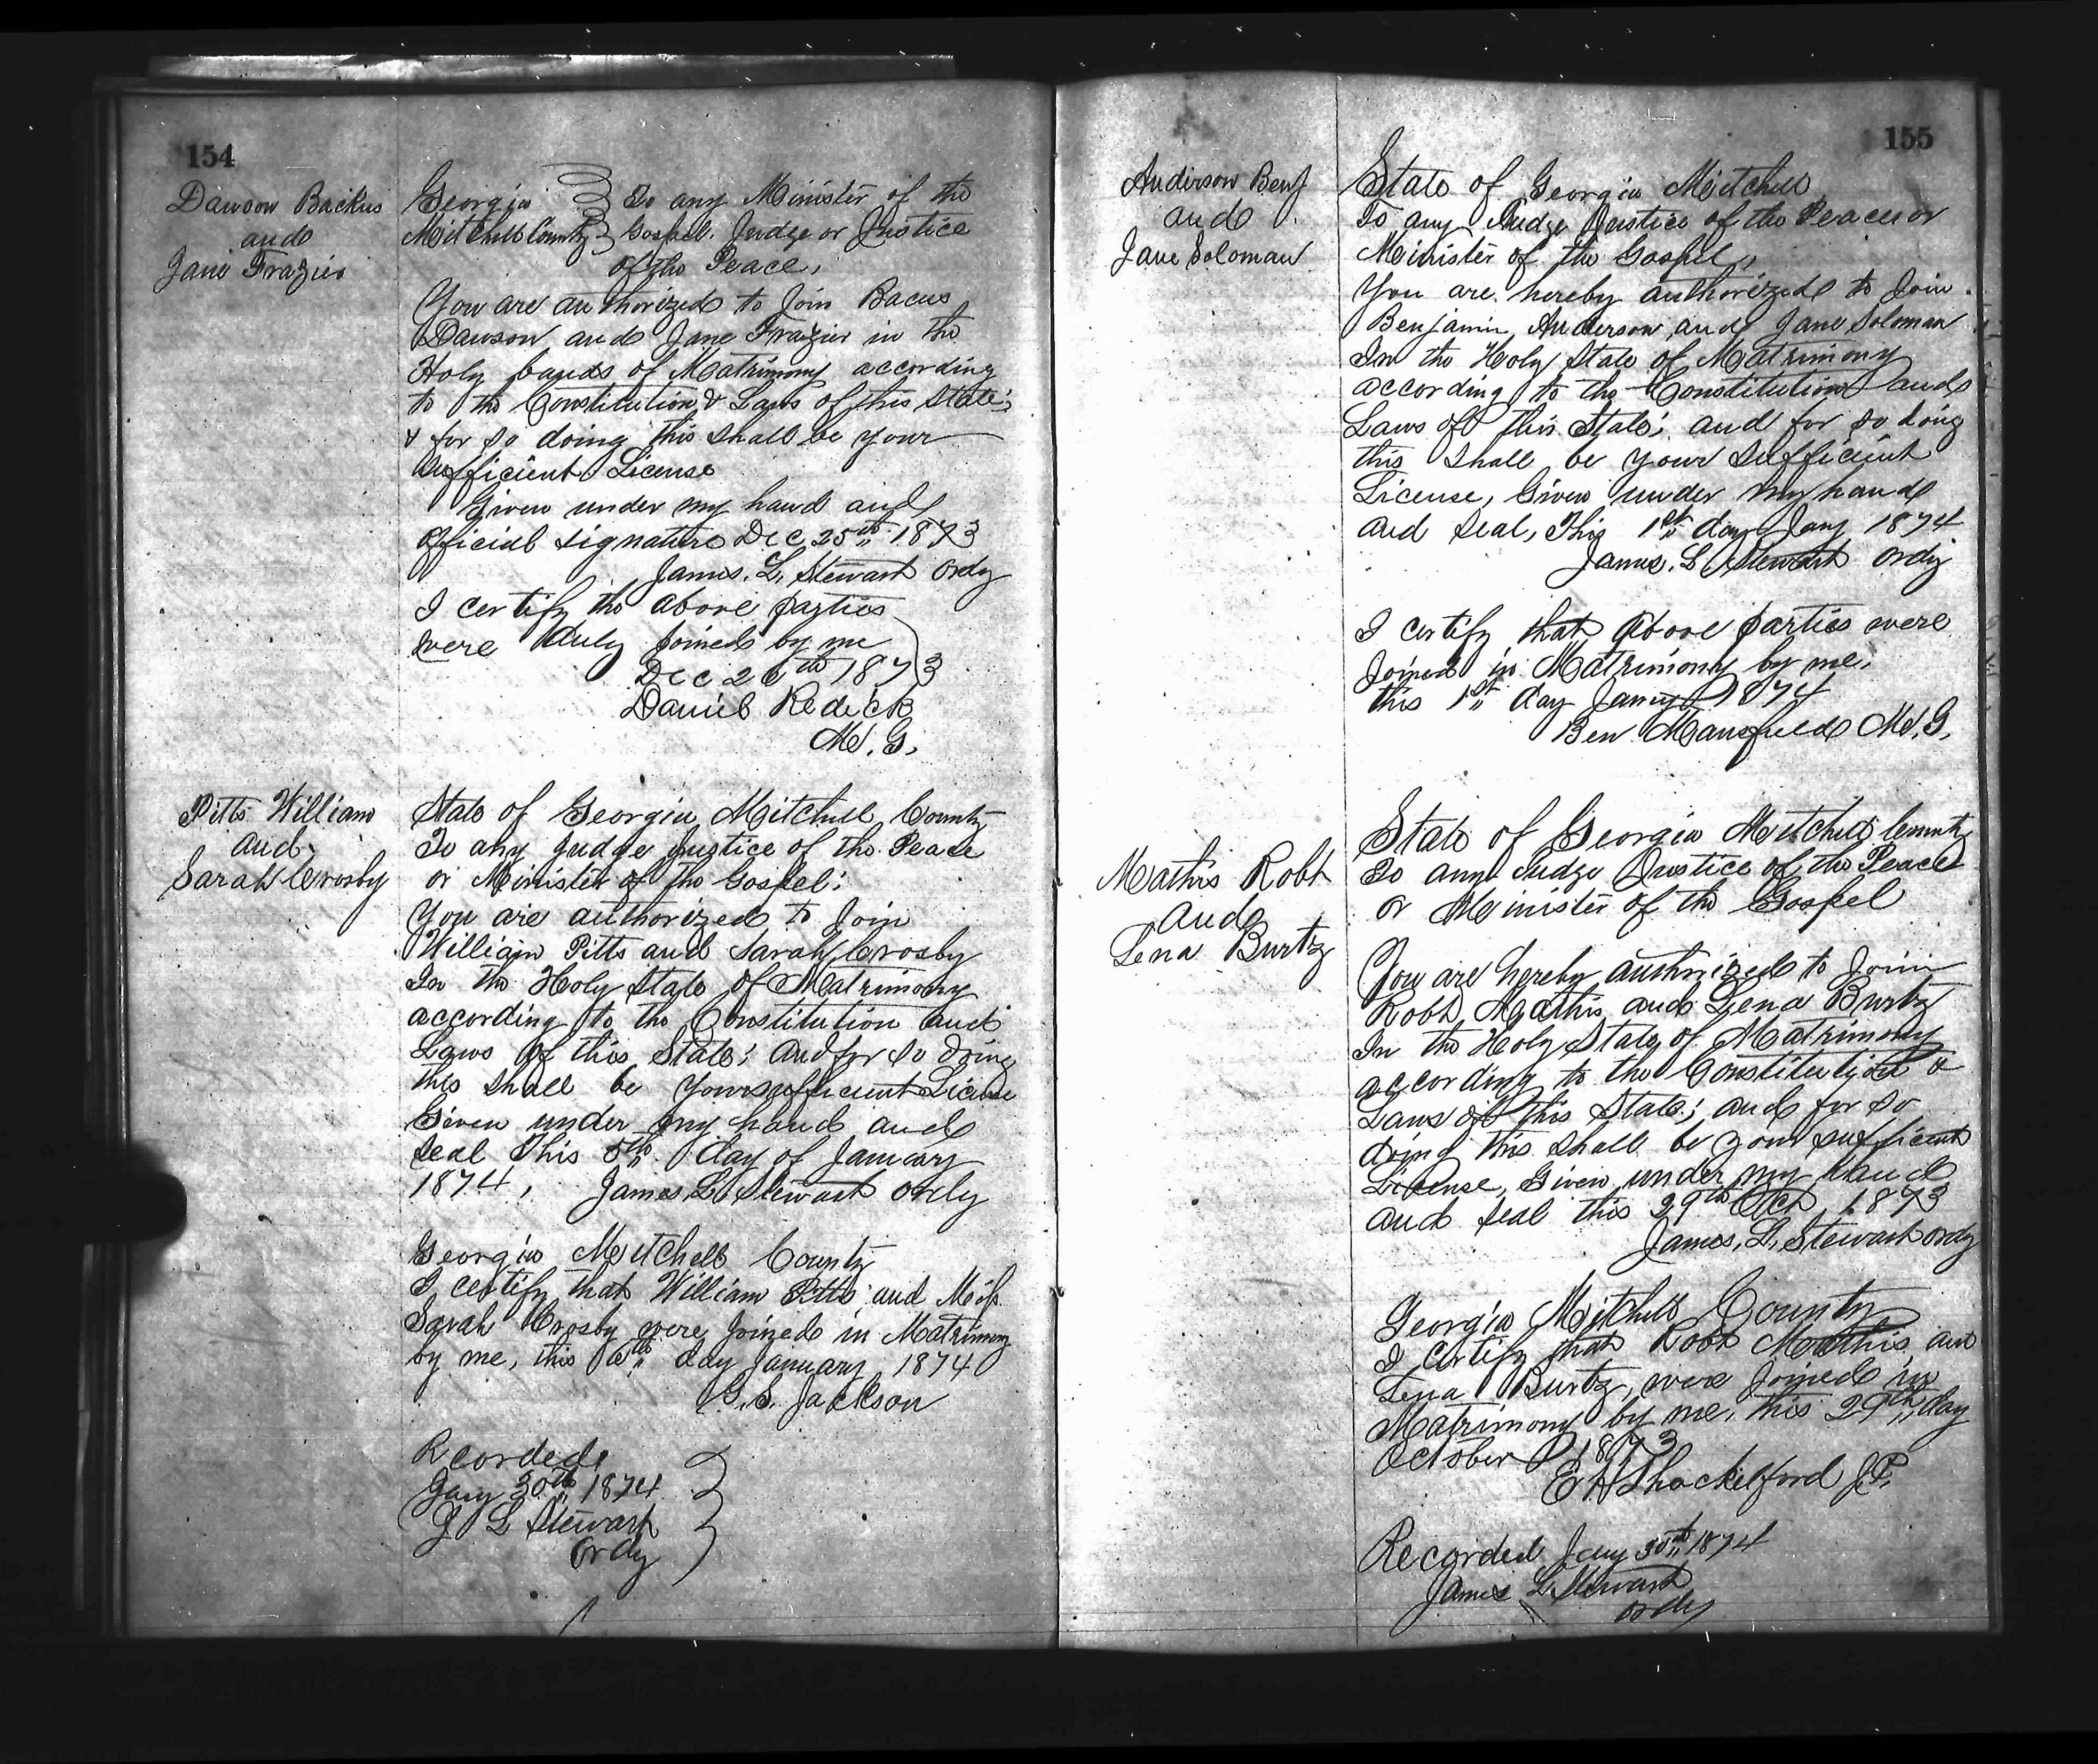 154
Dawson Backus
and
Jane Frazier
Georgia } To any Minister of the
Mitchell County } Gospel. Judge or Justice
of the Peace,
You are authorized to Join Bacus
Dawson and Jane Frazier in the
Holy bands of Matrimony according
to the Constitution & Laws of this State;
& for so doing this shall be your
sufficient License
Given under my hand and
official signature Dec 25th 1873
James. L. Stewart Ordy
I certify the above parties
were duly joined by me
Dec 26th 1873
Daniel Redick
M. G.
Pitts William
and
Sarah Crosby
State of Georgia Mitchell County
To any Judge Justice of the Peace
or Minister of the Gospel:
You are authorized to Join
William Pitts and Sarah Crosby
In the Holy State of Matrimony
according to the Constitution and
Laws of this State; and for so doing
this shall be your sufficient License
Given under my hand and
seal This 5th day of January
1874, James L. Stewart Ordy
Georgia Mitchell County
I certify that William Pitts and Miss
Sarah Crosby were Joined in Matrimony
by me, this 6th day January 1874
G. S. Jackson
Recorded
Jany 30th 1874
J L Stewart
Ordy
155
Anderson Benj
and
Jane Soloman
State of Georgia Mitchell
To any Judge Justice of the Peace or
Minister of the Gospel,
You are hereby authorized to Join
Benjamin Anderson and Jane Soloman
In the Holy State of Matrimony
according to the Constitution and
Laws of this State; and for so doing
this shall be your sufficient
License, Given under my hand
and seal, This 1st day Jany 1874
James. L Stewart Ordy
I certify that above parties were
Joined in Matrimony by me,
this 1st day Jany 1874
Ben Mansfield M. G.
Mathis Robt
and
Lena Burtz
State of Georgia Mitchell County
To any Judge Justice of the Peace
or Minister of the Gospel
You are hereby authorized to Join
Robt Mathis and Lena Burtz
In the Holy State of Matrimony
according to the Constitution &
Laws of this State; and for so
doing this shall be your sufficient
License, Given under my hand
and seal this 29th Oct 1873
James, L, Stewart Ordy
Georgia Mitchell County
I certify that Robt Mathis and
Lena Burtz, were Joined in
Matrimony by me, this 29th day
October 1873
E H Shackelford J.P.
Recorded Jany 30th 1874
James L Stewart
Ordy